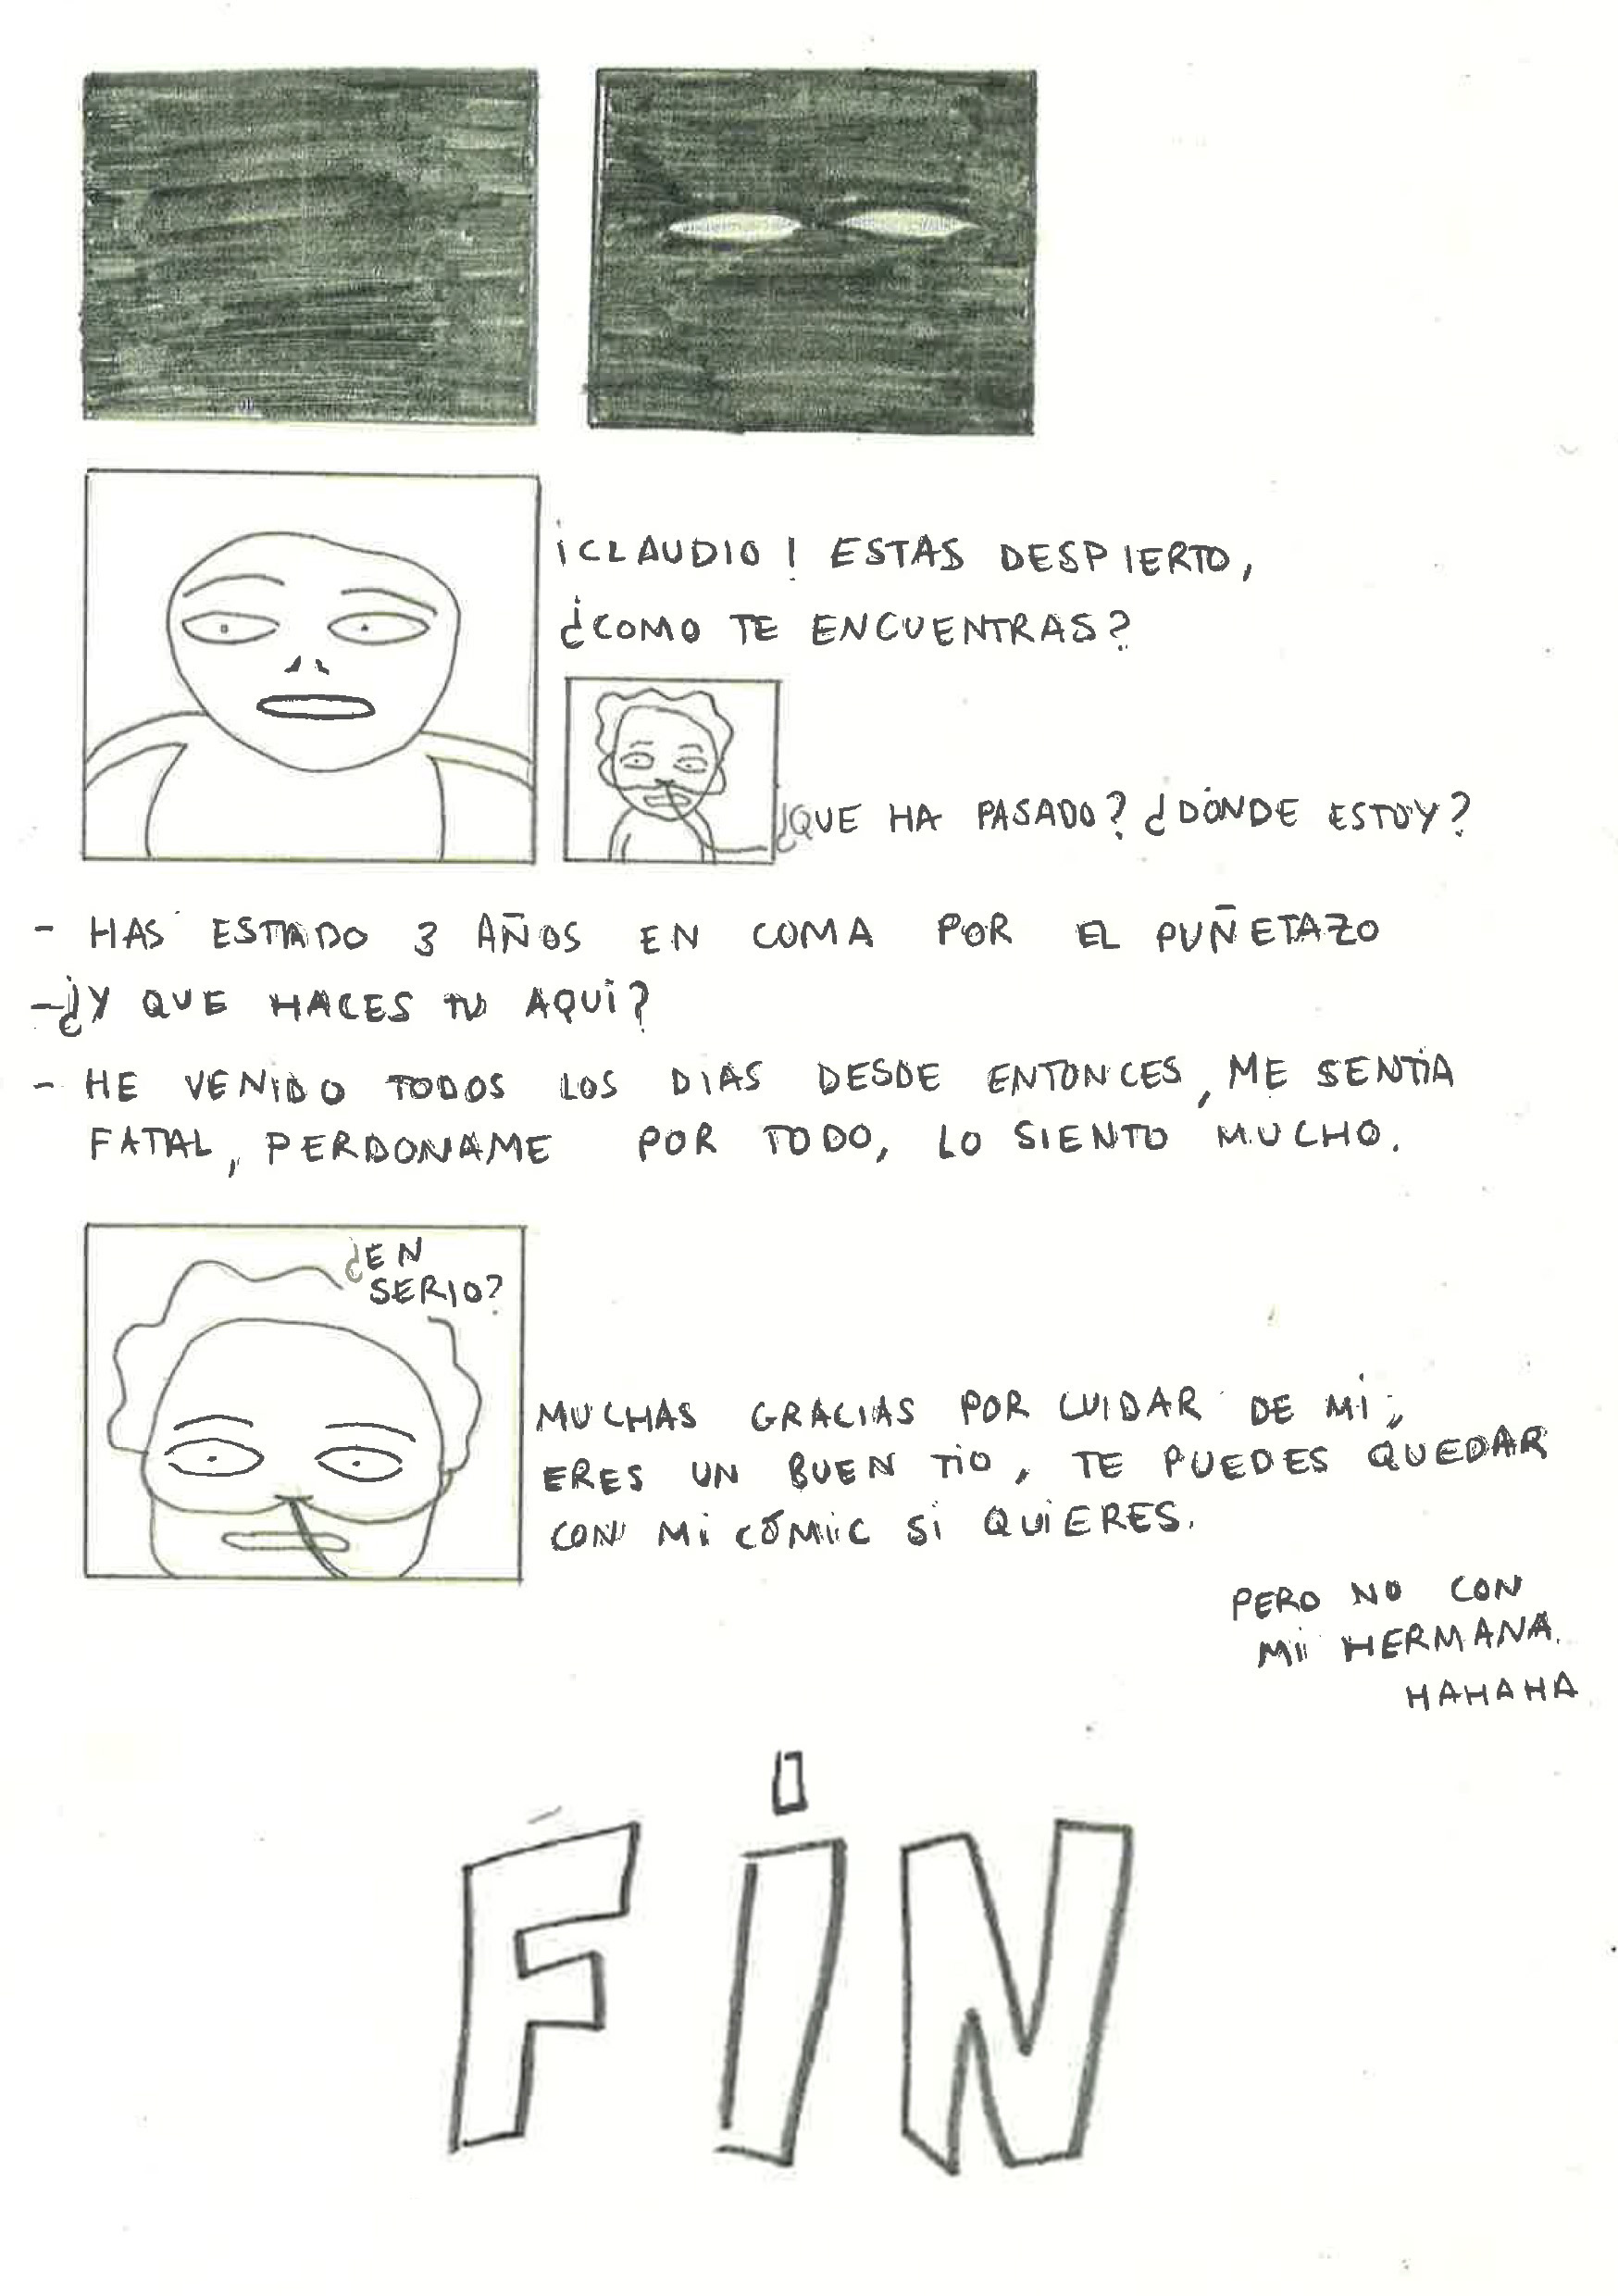 ¡CLAUDIO! ESTAS DESPIERTO,
¿COMO TE ENCUENTRAS?
¿QUE HA PASADO? ¿DÓNDE ESTOY?
- HAS ESTADO 3 AÑOS EN COMA POR EL PUÑETAZO
-¿Y QUE HACES TU AQUI?
- HE VENIDO TODOS LOS DIAS DESDE ENTONCES, ME SENTIA
FATAL, PERDONAME POR TODO, LO SIENTO MUCHO.
¿EN
SERIO?
MUCHAS GRACIAS POR CUIDAR DE MI,
ERES UN BUEN TIO, TE PUEDES QUEDAR
CON MI CÓMIC SI QUIERES.
PERO NO CON
MI HERMANA.
HAHAHA
FIN